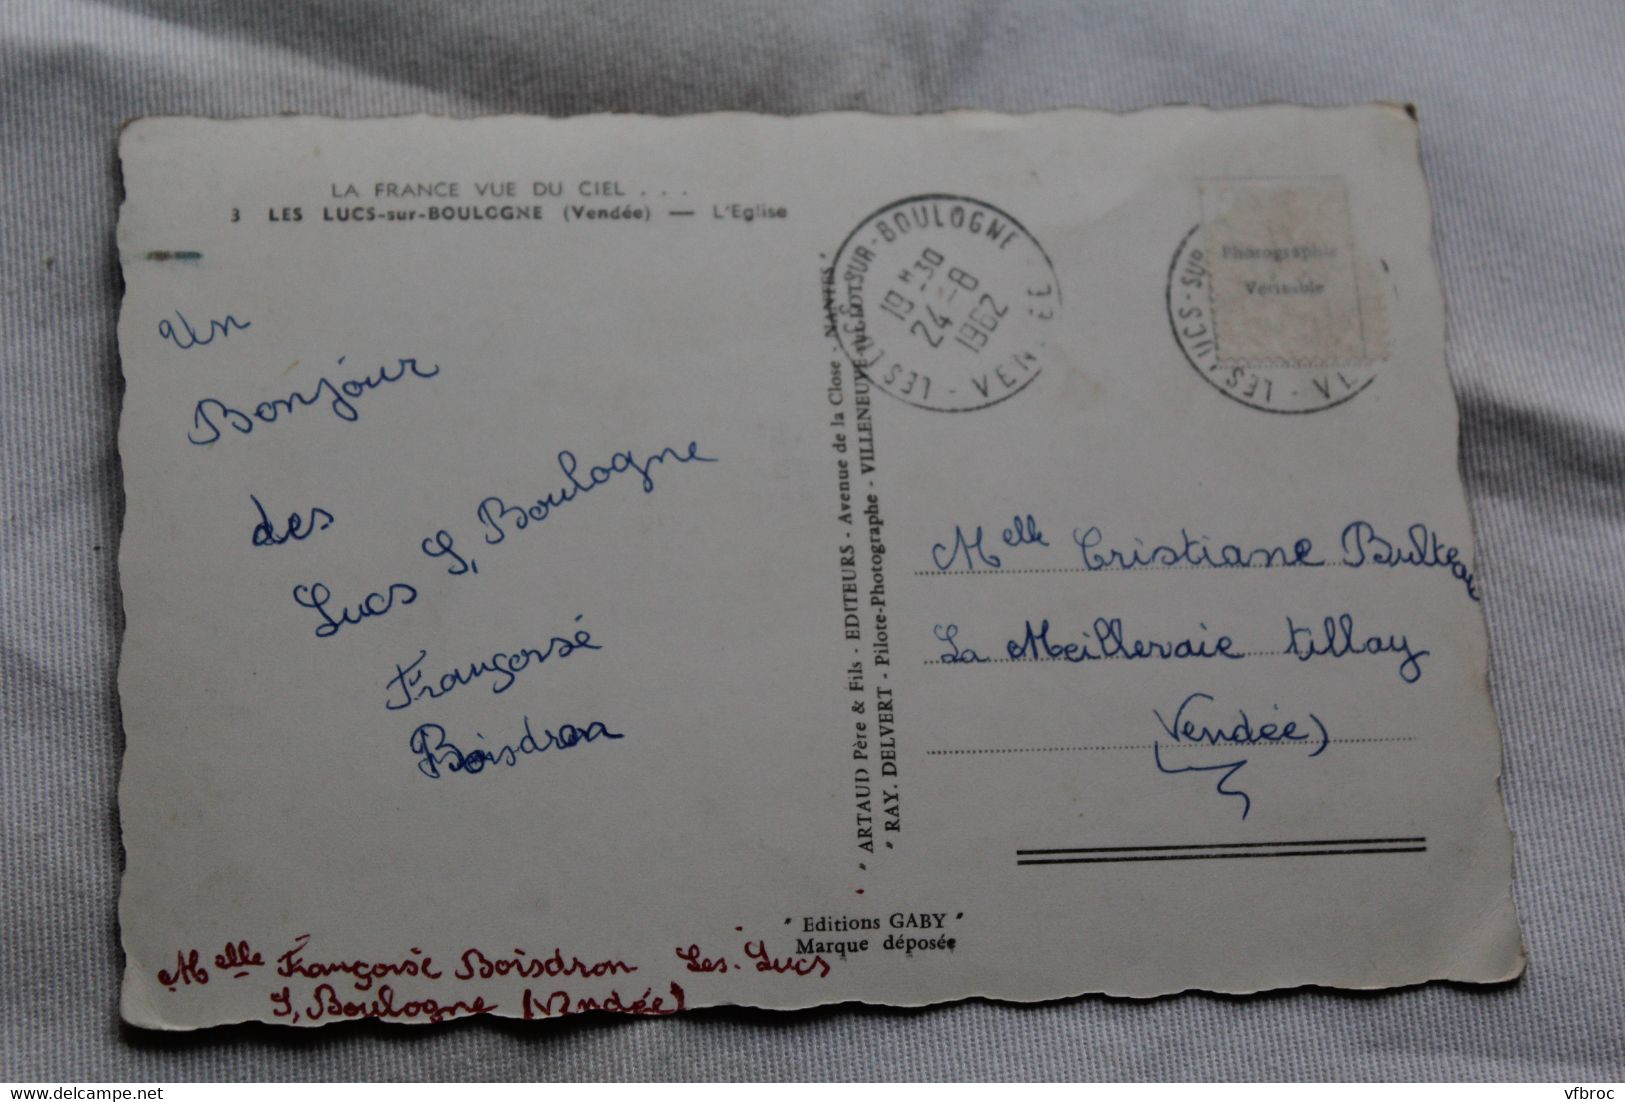 LA FRANCE VUE DU CIEL . . .
3 LES LUCS-sur-BOULOGNE (Vendée) — L'Eglise
Un
Bonjour
des
Lucs S, Boulogne
Françoisé
Boisdron
Melle Françoisé Boisdron Les. Lucs
S, Boulogne (Vendée)
" ARTAUD Père & Fils - EDITEURS - Avenue de la Close - NANTES "
" RAY. DELVERT - Pilote-Photographe - VILLENEUVE
" Editions GABY "
Marque déposée
SUR-BOULOGNE
19 H 30
24 -8
1962
LES
Photographie
Véritable
LES
Melle Cristiane Bulteau
La Meillervaie tillay
Vendée)
delcampe.net
vfbroc